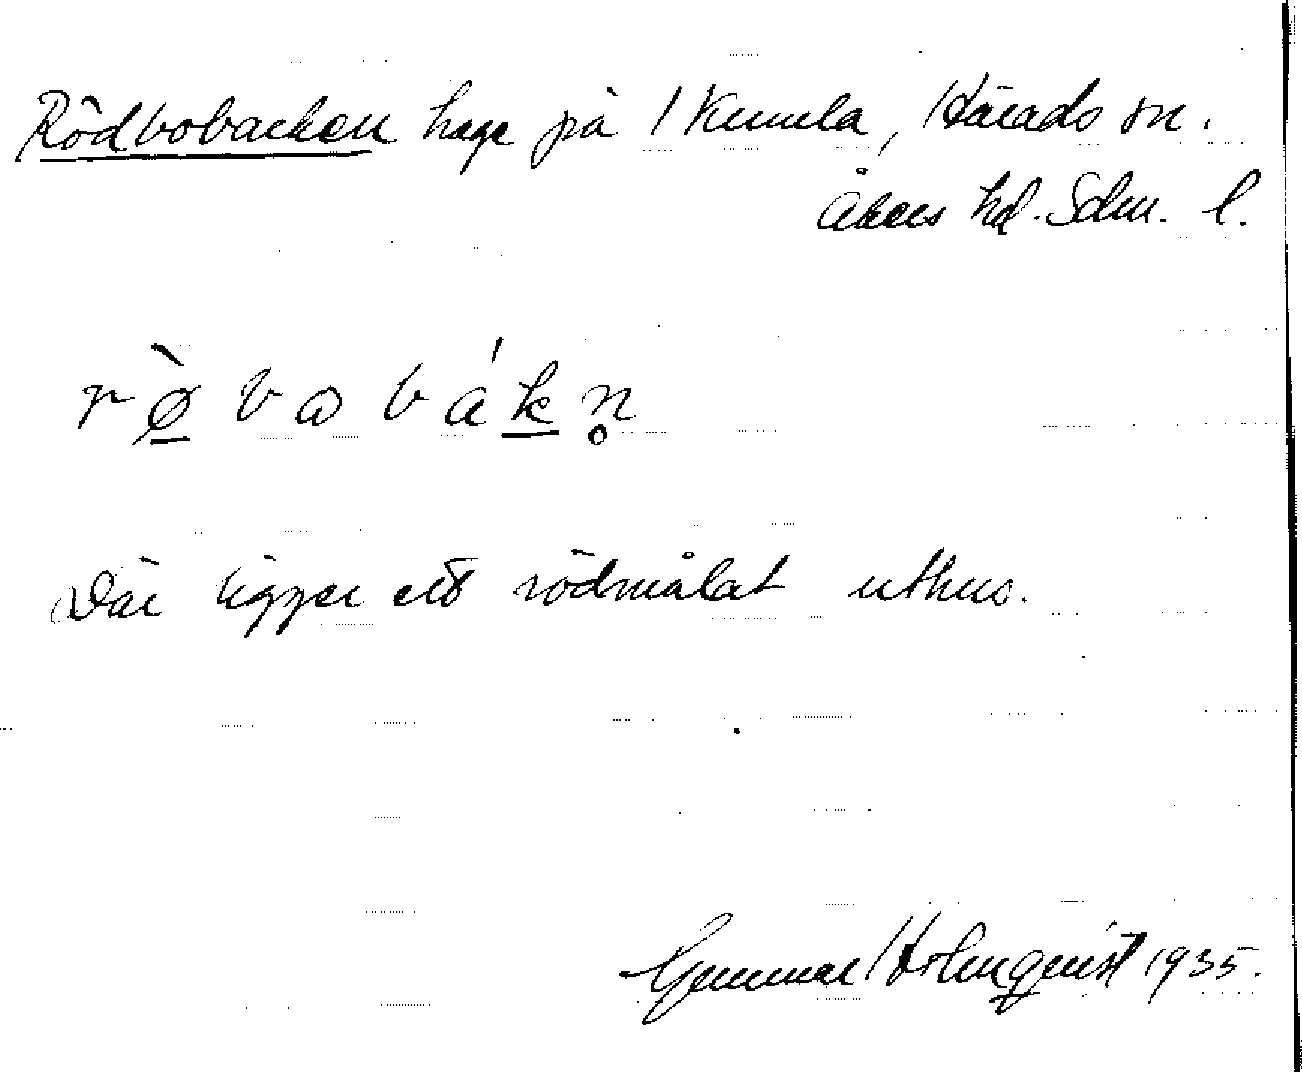 Rödbobacken hage på 1 Kumla, Härads sn.
Åkers hd. Sdm. l.
rø̠̀ bɷbák̠n̥
Där ligger ett rödmålat uthus.
Gunnar Holmquist 1935.